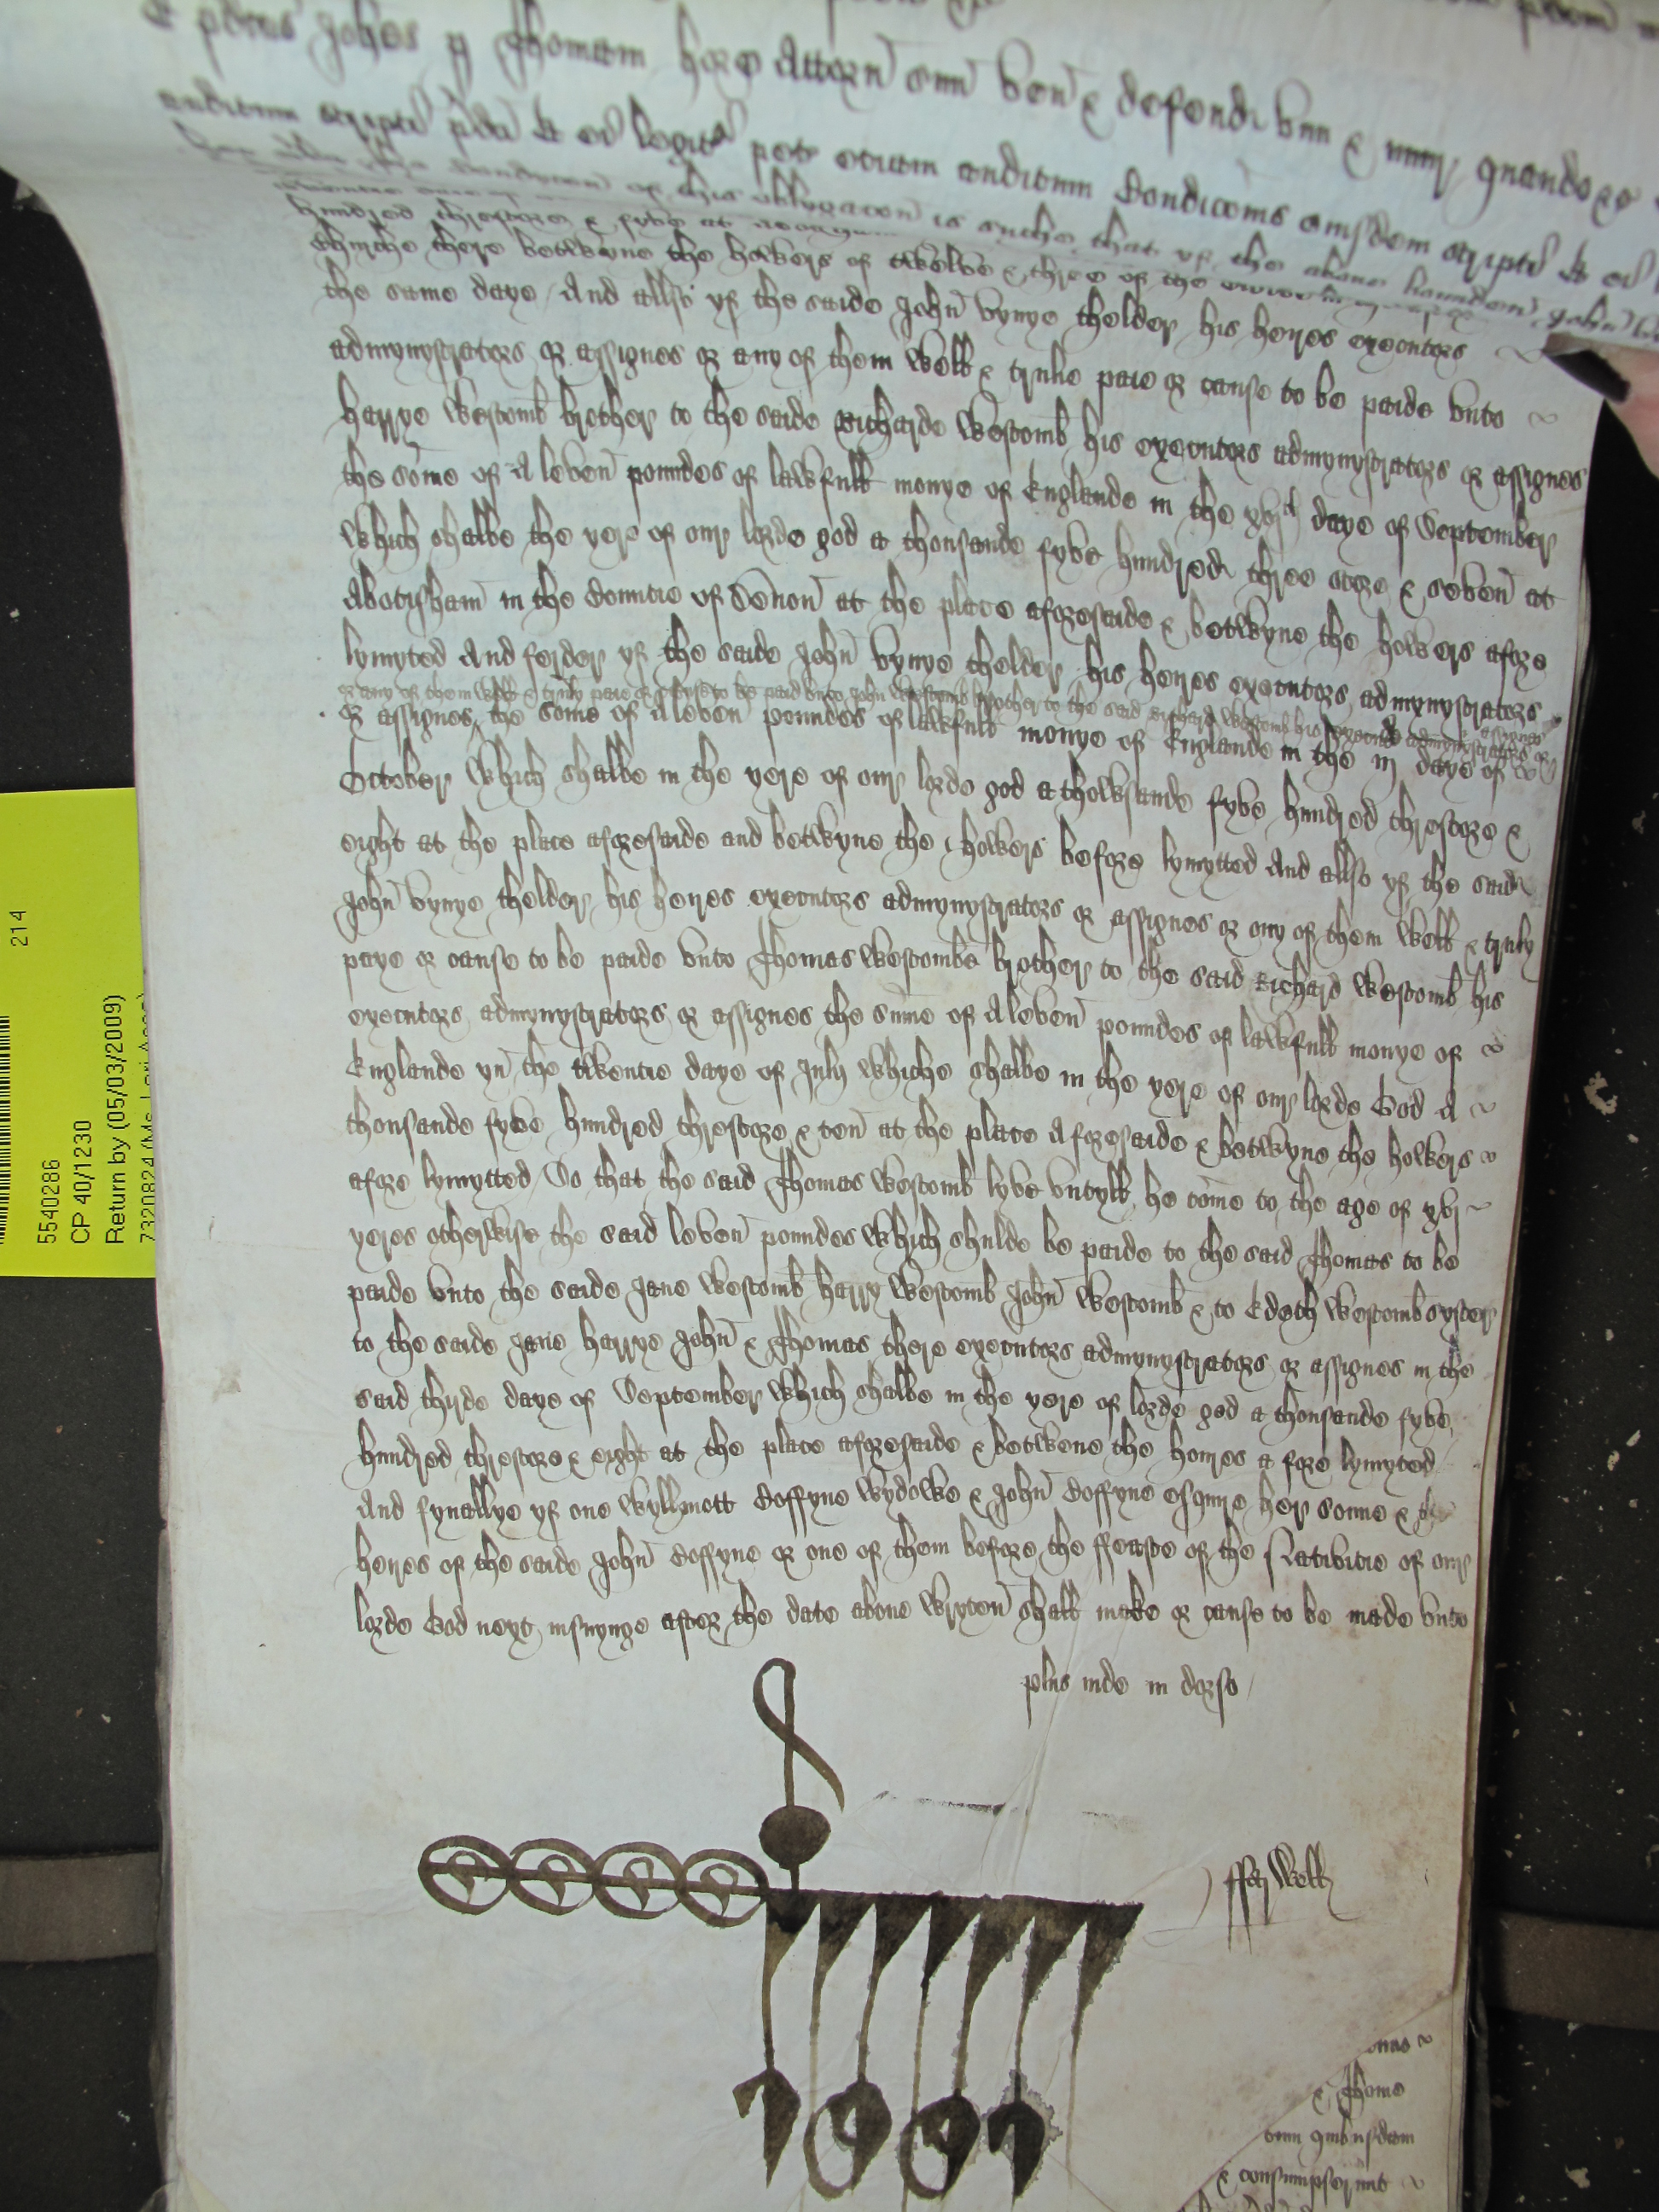 E pdcus Johes p Thomam hore Attorn suu ven & defend vim & iniur quando &c
auditum scripti pdci & ei legit petit eciam auditum Condicionis eiusdem scripti & ei
The Condycon of this oblygacon is suche that yf the above bounden John
hundred threscore & fyve at
Churche there betwyne the howers of twelve & three of the
the same daye And allso yf the saide John vynye thelder his heires executors
admynystrators or assignes or any of them well & trulie paie or cause to be paide unto
harrye Westcomb brother to the saide Richarde Westcomb his executors admynystrators or assignes
the some of A leven poundes of lawfull monye of Englande in the daye of September
which shalbe the yere of our lorde god a thousande fyve hundred three score & seven at
Abotisham in the Countie of Devon at the place aforesaide & betwyne the howers afore
lymyted And ferder yf the saide John vynye thelder his heires executors admynystrators
or any of them well & truly paie or cause to be paid unto John Westcomb brother to the said Richard Westcomb his executors admynystrators or assignes
or assignes the some of A leven poundes of lawfull monye of Englande in the iij daye of
October which shalbe in the yere of our lorde god a thowsande fyve hundred threscore &
eight at the place aforesaide and betwyne the howers before lymytted And allso yf the said
John vynye thelder his heires executors admynystrators or assignes or ony of them well & truly
paye or cause to be paide unto Thomas Westcombe brother to the said Richard Westcomb his
executors admynystrators or assignes the sume of A leven poundes of lawfull monye of
Englande yn the twentie daye of July whiche shalbe in the yere of our lorde God A
thousande fyve hundred threscore & ten at the place A foresaide & betwyne the howers
afore lymytted So that the said Thomas Westcomb lyve untyll he come to the age of xvj
yeres otherwise the said leven poundes which shulde be paide to the said Thomas to be
paide unto the saide Jane Westcomb harry Westcomb John Westcomb & to Edeth Westcomb syster
to the saide Jane harrye John & Thomas there executors admynystrators or assignes in the
said thyrde daye of September which shalbe in the yere of lorde god a thousande fyve
hundred threscore & eight at the place aforesaide & betwene the houres a fore lymyted
And fynallye yf one Wyllmott Coffyne wydowe & John Coffyne esquire her sonne & the
heires of the saide John Coffyne or one of them before the ffeaste of the Natibitie of our
lorde God next insuynge after the date above wryten shall make or cause to be made unto
plus inde in dorso
& Thome
cum quibusdam
& consumpserunt
5540286
214
CP 40/1230
Return by (05/03/2009)
7320824